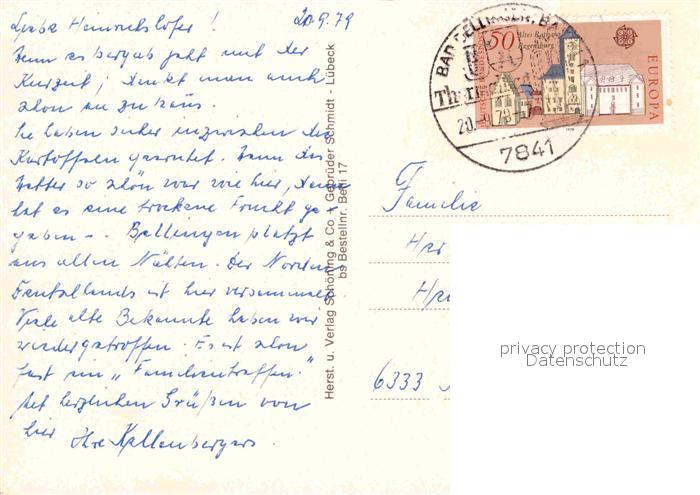 Liebe Heinrichslofer! 20.9.79
Wenn es bergab geht mit der
Kurzeit, denkt man auch
schon an zu Haus.
Sie haben sicher inzwischen die
Kartoffeln geerntet. Wenn das
Wetter so schön war wie hier, dann
hat es eine trockene Frucht ge
geben -. Bellingen platzt
aus allen Nähten. Der Norden
Deutschlands ist hier versammelt.
Viele alte Bekannte haben wir
wiedergetroffen. Es ist schon
fast ein „Familientreffen."
Mit herzlichen Grüßen von
hier Ihre Kellenbergers.
Herst. u. Verlag Schöning & Co + Gebrüder Schmidt - Lübeck
bs Bestellnr. Belli 17
BAD BELLINGEN, BA
Ther
20.-9.79
7841
50
Altes Rathaus
Regensburg
DEUTSCHE BUNDESPOST
EUROPA
Familie
6333
privacy protection
Datenschutz